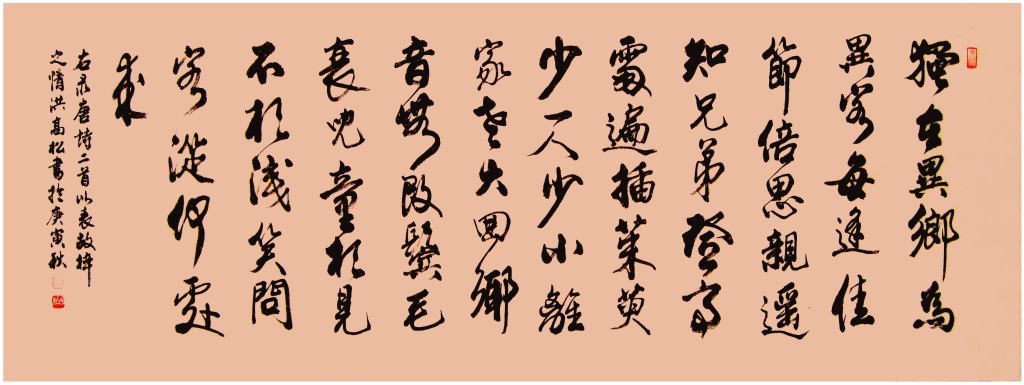 獨在異鄉為
異客每逢佳
節倍思親遥
知兄弟登高
處遍插茱萸
少一人少小離
家老大回鄉
音無改鬢毛
衰兒童相見
不相識笑問
客從何處
來
右录唐詩二首以表故梓
之情洪高松書於庚寅秋